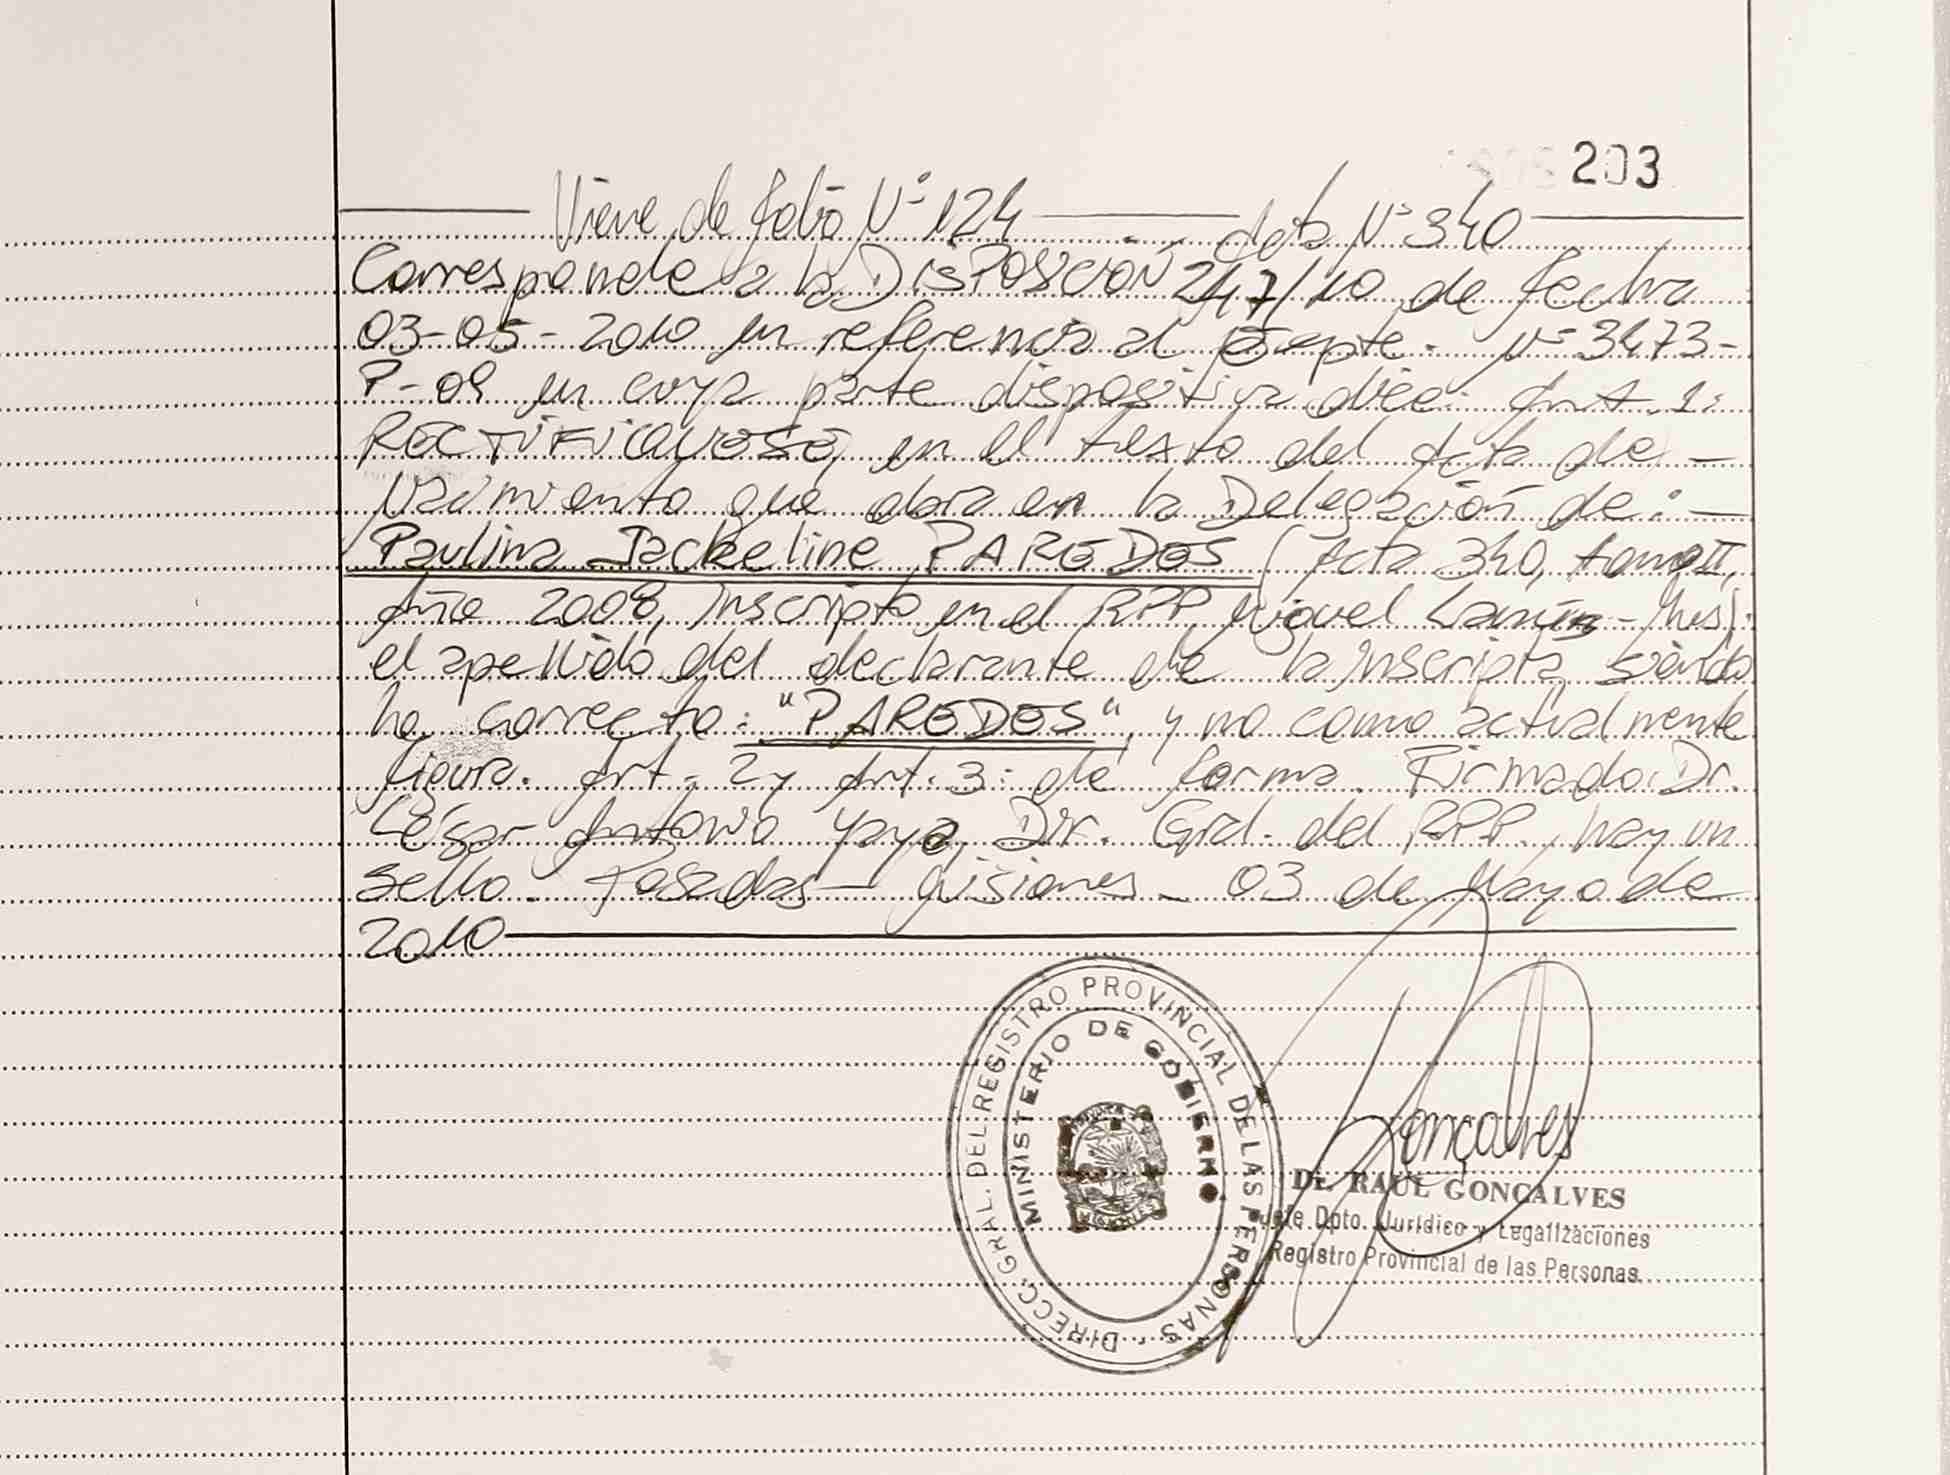 203
Viene de folio N° 124 Acta N° 340
Corresponde a la DISPOSICIÓN 247/10 de fecha
03-05-2010 en referencia al Expte. N° 3473-
P-09 en cuya parte dispositiva dice: Art. 1:
RECTIFIQUESE, en el texto del Acta de
Nacimiento que obra en la Delegación de:
Paulina Jackeline PAREDES (Acta 340, tomo II,
Año 2008, Inscripta en el RPP, Miguel Lanús - Mnes).
el apellido del declarante de la Inscripta siendo
lo correcto: "PAREDES", y no como actualmente
figura. Art. 2 y Art. 3: de forma. Firmado: Dr.
César Antonio Yaya, Dir. Gral. del RPP., hay un
sello. Posadas - Misiones - 03 de Mayo de
2010
DIRECC. GRAL. DEL REGISTRO PROVINCIAL DE LAS PERSONAS
MINISTERIO DE GOBIERNO
MISIONES
Gonçalves
Dr. RAUL GONÇALVES
Jefe Dpto. Jurídico y Legalizaciones
Registro Provincial de las Personas